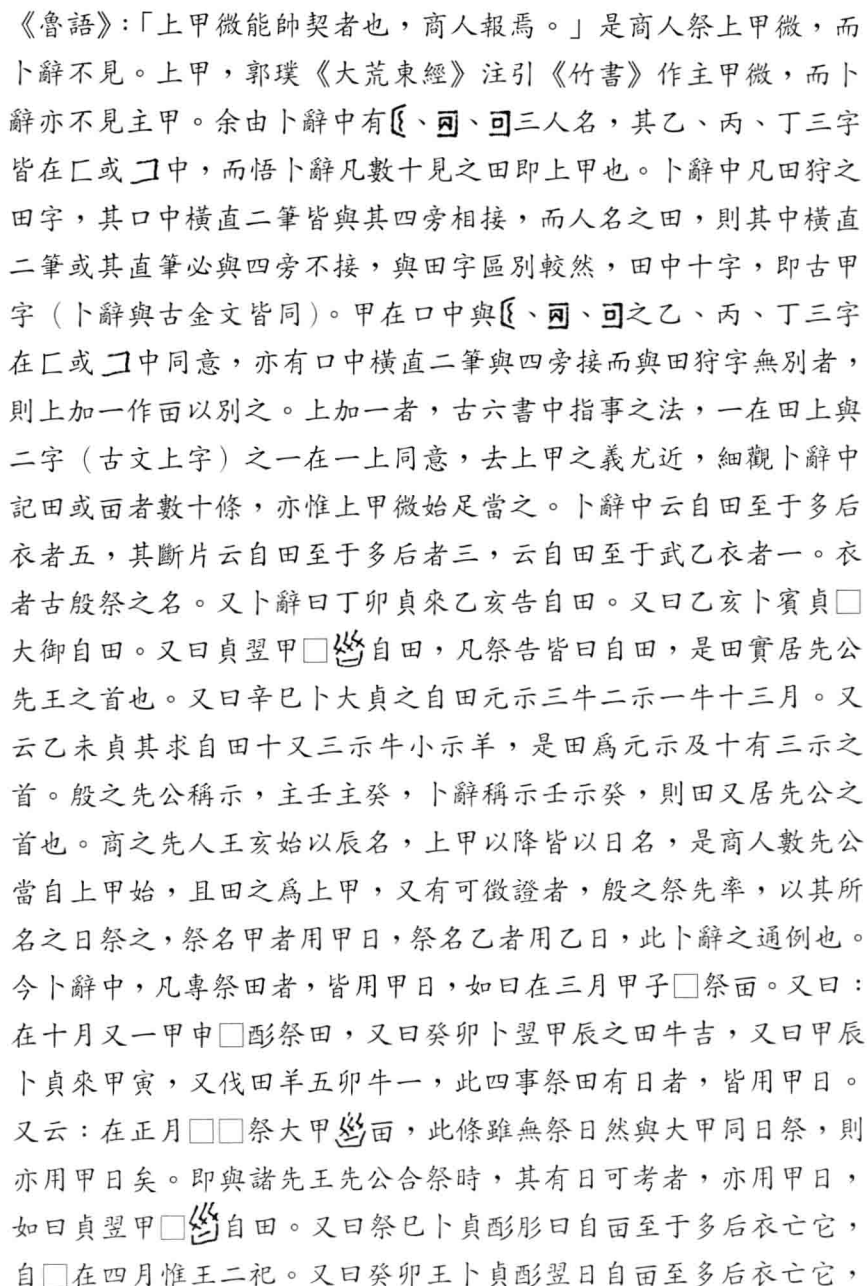 《魯語》:「上甲微能帥契者也,商人報焉。」是商人祭上甲微,而
卜辭不見。上甲,郭璞《大荒東經》注引《竹書》作主甲微,而卜
辭亦不見主甲。余由卜辭中有、、三人名,其乙、丙、丁三字
皆在匚或中,而悟卜辭凡數十見之田即上甲也。卜辭中凡田狩之
田字,其口中橫直二筆皆與其四旁相接,而人名之田,則其中橫直
二筆或其直筆必與四旁不接,與田字區別較然,田中十字,即古甲
字(卜辭與古金文皆同)。甲在口中與、、之乙、丙、丁三字
在匚或中同意,亦有口中橫直二筆與四旁接而與田狩字無別者,
則上加一作畐以別之。上加一者,古六書中指事之法,一在田上與
二字(古文上字)之一在一上同意,去上甲之義尤近,細觀卜辭中
記田或者數十條,亦惟上甲微始足當之。卜辭中云自田至于多后
衣者五,其斷片云自田至于多后者三,云自田至于武乙衣者一。衣
者古殷祭之名。又卜辭曰丁卯貞來乙亥告自田。又曰乙亥卜賓貞□
大御自田。又曰貞翌甲□自田,凡祭告皆曰自田,是田實居先公
先王之首也。又曰辛巳卜大貞之自田元示三牛二示一牛十三月。又
云乙未貞其求自田十又三示牛小示羊,是田爲元示及十有三示之
首。殷之先公稱示,主壬主癸,卜辭稱示壬示癸,則田又居先公之
首也。商之先人王亥始以辰名,上甲以降皆以日名,是商人數先公
當自上甲始,且田之爲上甲,又有可徵證者,殷之祭先率,以其所
名之日祭之,祭名甲者用甲日,祭名乙者用乙日,此卜辭之通例也。
今卜辭中,凡專祭田者,皆用甲日,如曰在三月甲子□祭。又曰:
在十月又一甲申□酌祭田,又曰癸卯卜翌甲辰之田牛吉,又曰甲辰
卜貞來甲寅,又伐田羊五卯牛一,此四事祭田有日者,皆用甲日。
又云:在正月□□祭大甲,此條雖無祭日然與大甲同日祭,則
亦用甲日矣。即與諸先王先公合祭時,其有日可考者,亦用甲日,
如曰貞翌甲□自田。又曰祭巳卜貞酌肜日自至于多后衣亡它,
自□在四月惟王二祀。又曰癸卯王卜貞酌翌日自至多后衣亡它,